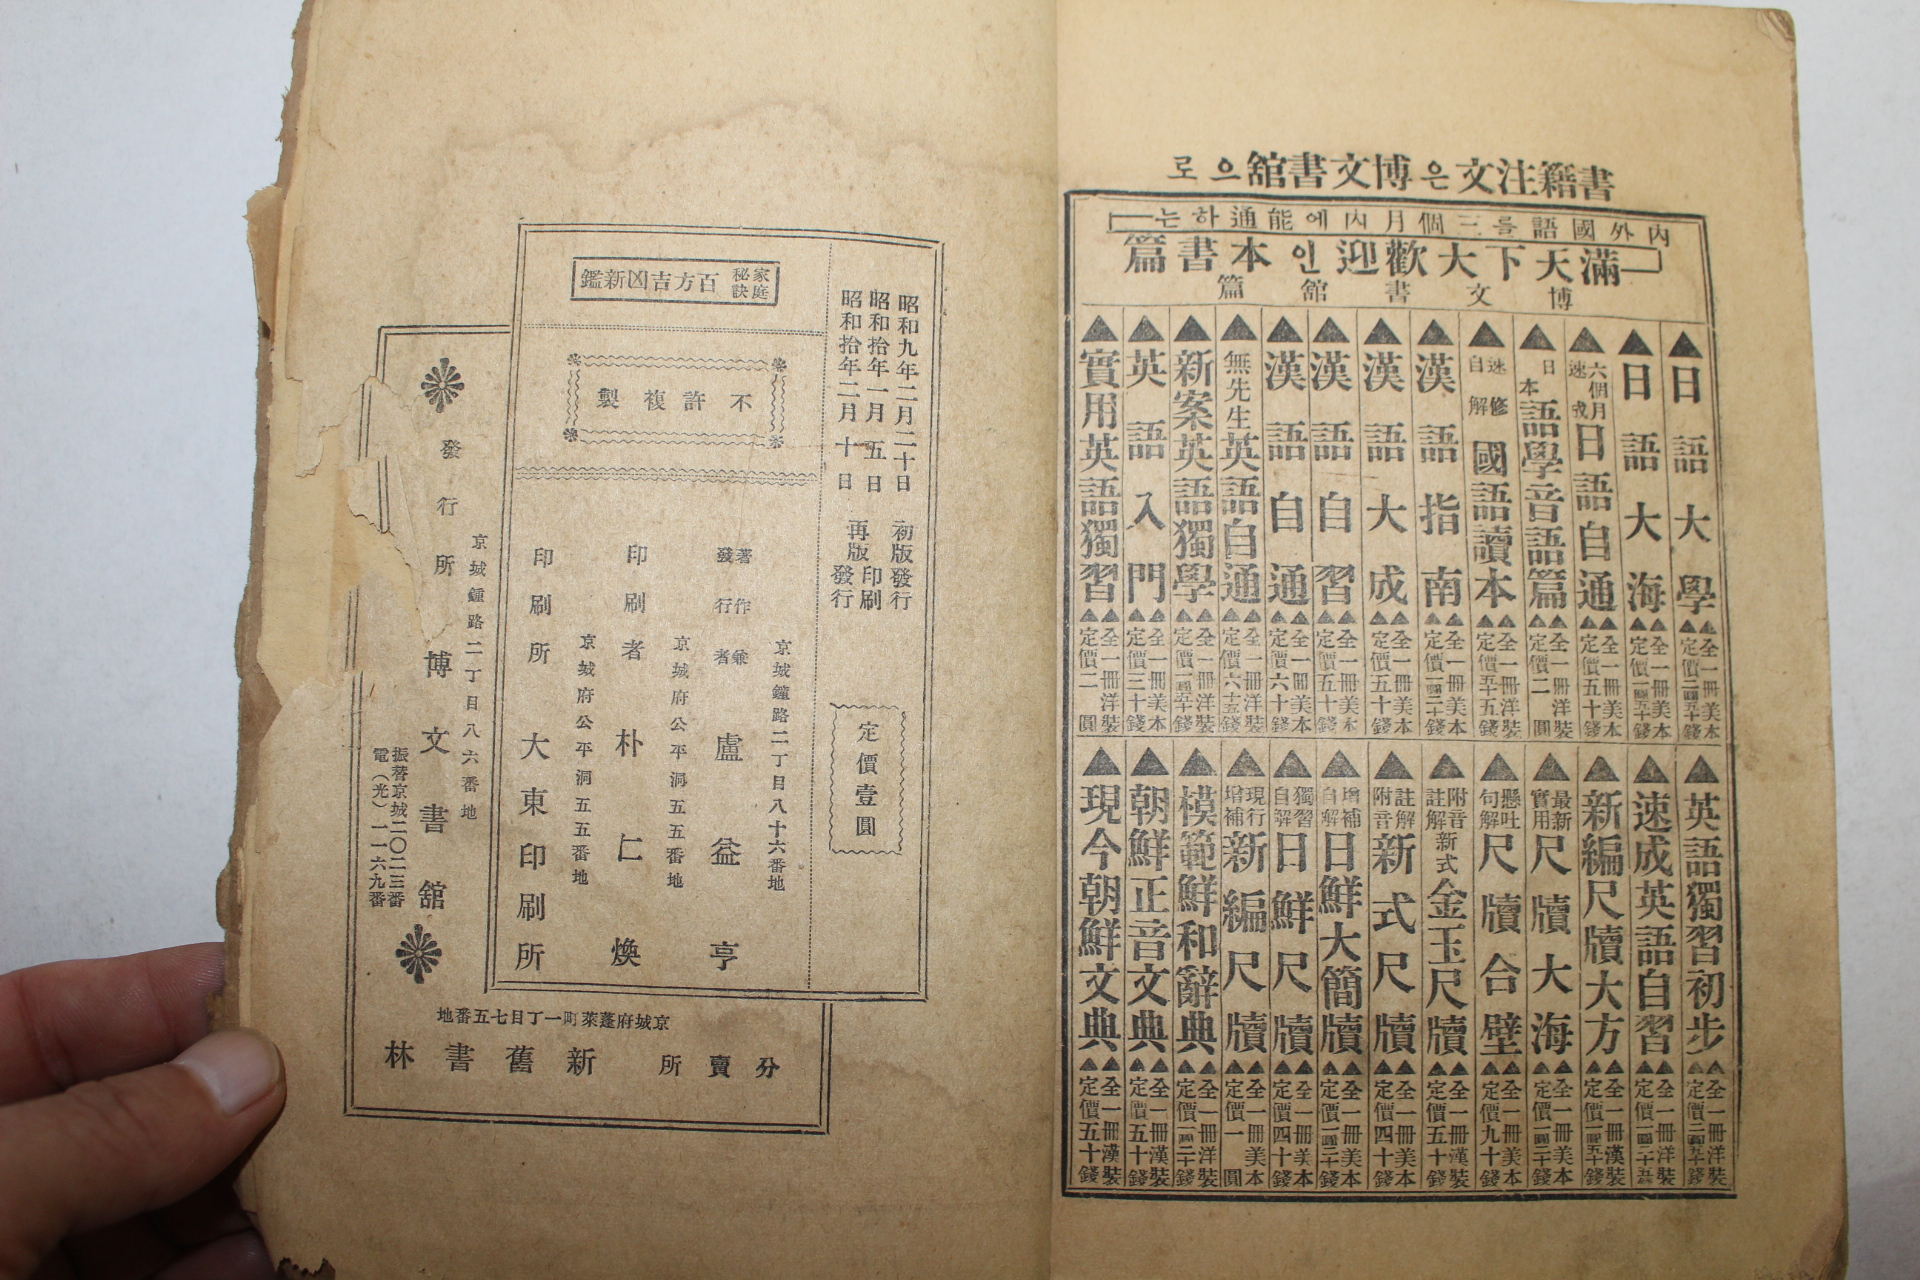 書籍注文은博文書舘으로
內外國語를三個月內에能通하는
滿天下大歡迎인本書篇
博文書舘篇
日語大學 全一冊美本 定價二圓五十錢
日語大海 全一冊美本 定價一圓五十錢
六個月速成 日語自通 全一冊美本 定價五十錢
日本語學音語篇 全一冊洋裝 定價二圓
速修自解 國語讀本 全一冊洋裝 定價五十五錢
漢語指南 全一冊美本 定價一圓二十錢
漢語大成 全一冊美本 定價五十錢
漢語自習 全一冊美本 定價五十錢
漢語自通 全一冊美本 定價六十錢
無先生英語自通 全一冊洋裝 定價六十五錢
新案英語獨學 全一冊洋裝 定價一圓五十錢
英語入門 全一冊美本 定價三十錢
實用英語獨習 全一冊洋裝 定價二圓
英語獨習初步 全一冊洋裝 定價二圓五十錢
速成英語自習 全一冊漢裝 定價一圓二十五錢
新編尺牘大方 全一冊漢裝 定價一圓五十錢
最新實用 尺牘大海 全一冊美本 定價一圓二十錢
懸吐句解 尺牘合壁 全一冊美本 定價九十錢
附音註解 新式金玉尺牘 全一冊漢裝 定價五十錢
註解附音 新式尺牘 全一冊美本 定價四十錢
增補自解 日鮮大簡牘 全一冊美本 定價一圓二十錢
獨習自解 日鮮尺牘 全一冊美本 定價四十錢
現行增補 新編尺牘 全一冊美本 定價一圓
模範鮮和辭典 全一冊洋裝 定價一圓二十錢
朝鮮正音文典 全一冊漢裝 定價五十錢
現今朝鮮文典 全一冊漢裝 定價五十錢
家庭秘訣 百方吉凶新鑑
不許複製
昭和九年二月二十日 初版發行
昭和拾年一月五日 印刷
昭和拾年二月十日 再版發行
定價壹圓
京城鐘路二丁目八十六番地
著作兼發行者 盧益亨
京城府公平洞五五番地
印刷者 朴仁煥
京城府公平洞五五番地
印刷所 大東印刷所
京城鍾路二丁目八六番地
發行所 博文書舘
振替京城二〇二三番
電(光)一一六九番
京城府蓬萊町一丁目七五番地
分賣所 新舊書林